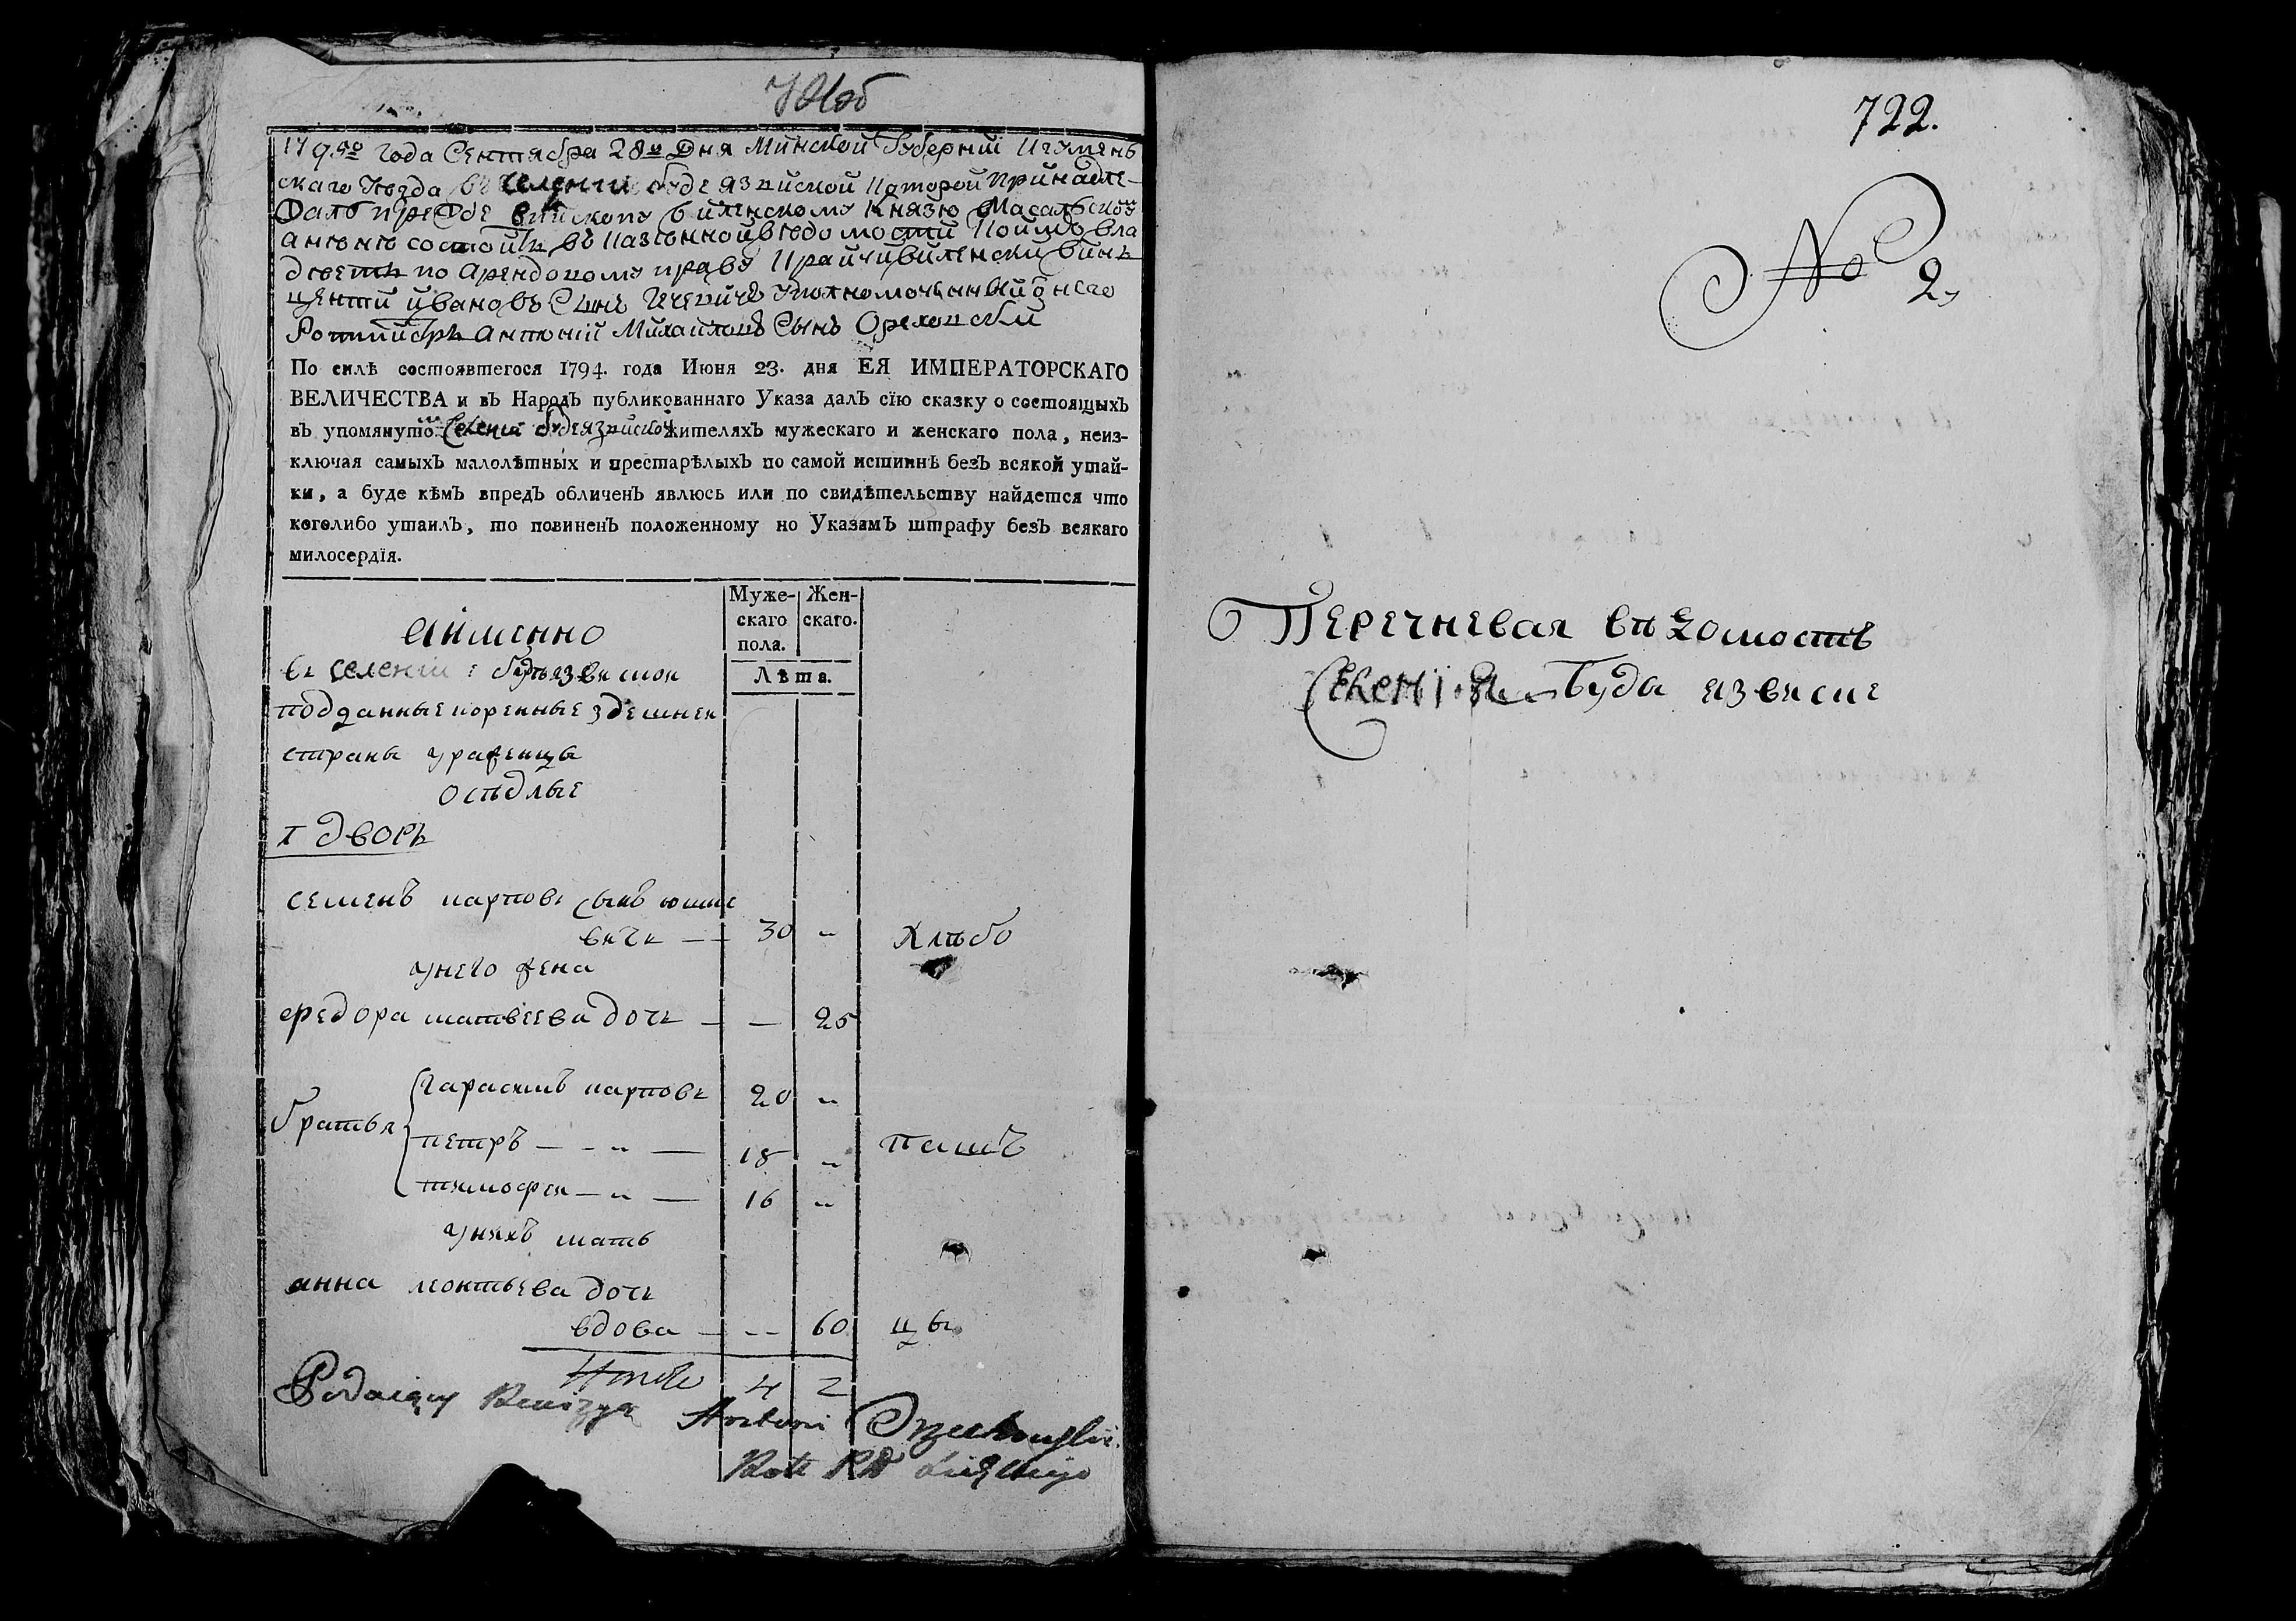 1795го года Сентября 28го Дня Минской Губернїи Игумень
скаго Повѣда въ Селенїи буде язвиской которой принадле-
жалъ прежде Епископу виленскому Князю Масальскому
а ныне состоитъ въ Казенной ведомости Коимъ вла
дѣетъ по Арендовому праву Крайчїи виленски Винъ
центїй ивановъ Сынъ Уполномоченный онаго
Ротмистръ Антонїй Михаиловъ Сынъ Ореховски
По силѣ состоявшегося 1794. года Июня 23. дня ЕЯ ИМПЕРАТОРСКАГО
ВЕЛИЧЕСТВА и въ Народъ публикованнаго Указа далъ сїю сказку о состоящыхъ
въ упомянуто Селенїи будеязвиской жителяхъ мужескаго и женскаго пола, неиз-
ключая самыхъ малолѣтныхъ и престарѣлыхъ по самой истиннѣ безъ всякой утай-
ки, а буде кѣмъ впредъ обличенъ явлюсь или по свидѣтельству найдется что
коголибо утаилъ, то повиненъ положенному по Указамъ штрафу безъ всякаго
милосердїя.
Муже- Жен-
скаго скаго.
пола.
Лѣта.
аименно
въ селенїи будѣязвиской
подданные коренные здешнеи
страны уроженцы
оседлые
1 дворъ
семенъ карповъ сынъ юшке
вичъ — 30 „ хлѣбо
унего жена
федора матвеева дочь — — 25
братья
гарасимъ карповъ 20 „
петръ — - „ — 18 „ пашъ
тимофеи — „ — 16 „
унихъ мать
анна леонтьева дочь
вдова — -- 60 цы
Итого 4 2
Podaiący Rewizyą Antoni Orzechowski
722.
No 2,
Перечневая вѣдомость
Селенїя Буда язвиске